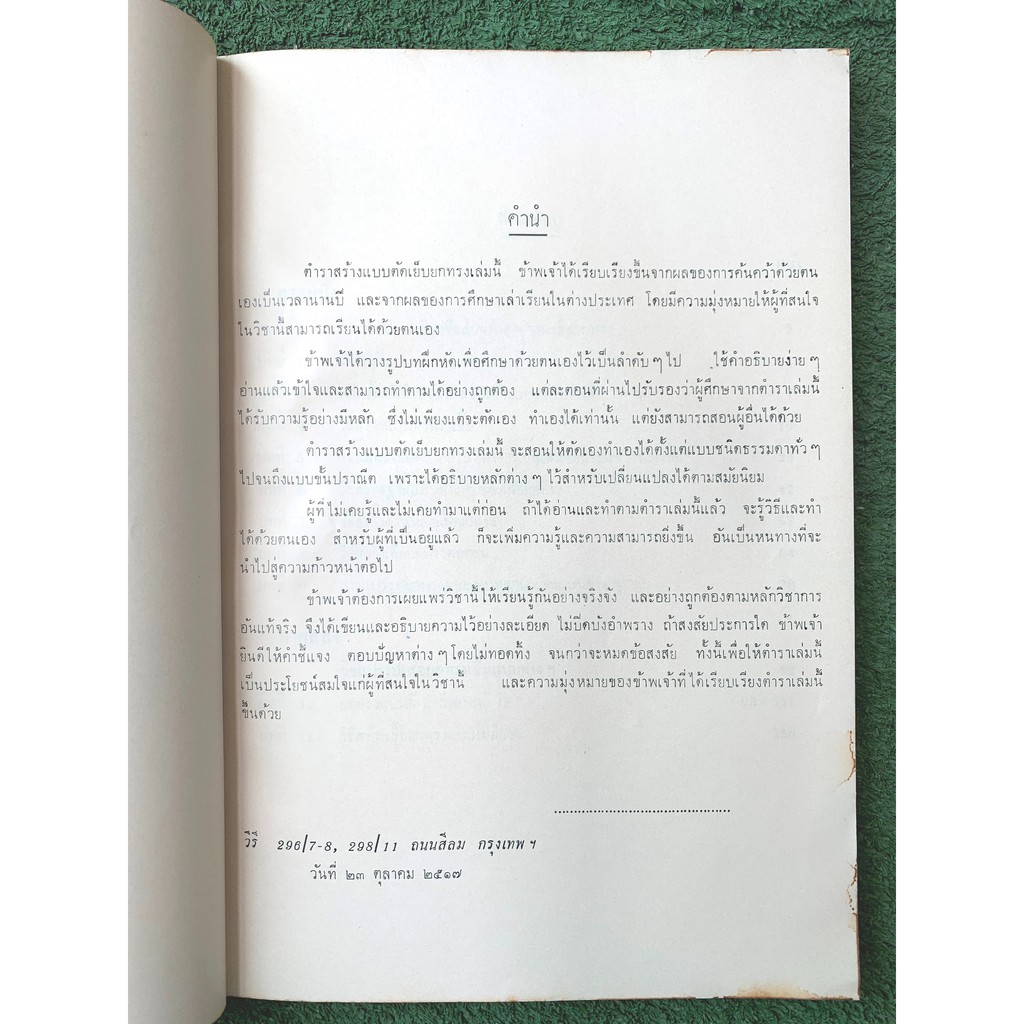 คำนำ
ตำราสร้างแบบตัดเย็บยกทรงเล่มนี้ ข้าพเจ้าได้เรียบเรียงขึ้นจากผลของการค้นคว้าด้วยตน
เองเป็นเวลานานปี และจากผลของการศึกษาเล่าเรียนในต่างประเทศ โดยมีความมุ่งหมายให้ผู้ที่สนใจ
ในวิชานี้สามารถเรียนได้ด้วยตนเอง
ข้าพเจ้าได้วางรูปบทฝึกหัดเพื่อศึกษาด้วยตนเองไว้เป็นลำดับ ๆ ไป ใช้คำอธิบายง่าย ๆ
อ่านแล้วเข้าใจและสามารถทำตามได้อย่างถูกต้อง แต่ละตอนที่ผ่านไปรับรองว่าผู้ศึกษาจากตำราเล่มนี้
ได้รับความรู้อย่างมีหลัก ซึ่งไม่เพียงแต่จะตัดเอง ทำเองได้เท่านั้น แต่ยังสามารถสอนผู้อื่นได้ด้วย
ตำราสร้างแบบตัดเย็บยกทรงเล่มนี้ จะสอนให้ตัดเองทำเองได้ตั้งแต่แบบชนิดธรรมดาทั่ว ๆ
ไปจนถึงแบบขั้นปราณีต เพราะได้อธิบายหลักต่าง ๆ ไว้สำหรับเปลี่ยนแปลงได้ตามสมัยนิยม
ผู้ที่ไม่เคยรู้และไม่เคยทำมาแต่ก่อน ถ้าได้อ่านและทำตามตำราเล่มนี้แล้ว จะรู้วิธีและทำ
ได้ด้วยตนเอง สำหรับผู้ที่เป็นอยู่แล้ว ก็จะเพิ่มความรู้และความสามารถยิ่งขึ้น อันเป็นหนทางที่จะ
นำไปสู่ความก้าวหน้าต่อไป
ข้าพเจ้าต้องการเผยแพร่วิชานี้ให้เรียนรู้กันอย่างจริงจัง และอย่างถูกต้องตามหลักวิชาการ
อันแท้จริง จึงได้เขียนและอธิบายความไว้อย่างละเอียด ไม่ปิดบังอำพราง ถ้าสงสัยประการใด ข้าพเจ้า
ยินดีให้คำชี้แจง ตอบปัญหาต่าง ๆ โดยไม่ทอดทิ้ง จนกว่าจะหมดข้อสงสัย ทั้งนี้เพื่อให้ตำราเล่มนี้
เป็นประโยชน์สมใจแก่ผู้ที่สนใจในวิชานี้ และความมุ่งหมายของข้าพเจ้าที่ได้เรียบเรียงตำราเล่มนี้
ขึ้นด้วย
............................................
วิรี 296/7-8, 298/11 ถนนสีลม กรุงเทพ ฯ
วันที่ ๒๓ ตุลาคม ๒๕๑๗